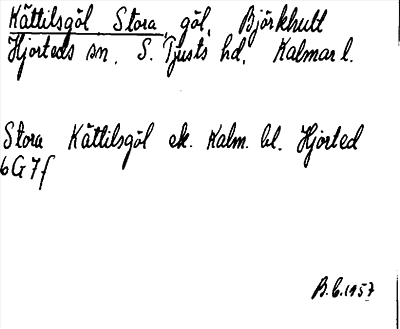 Kättilsgöl Stora, göl, Björkhult
Hjorteds sn, S. Tjusts hd, Kalmar l.
Stora Kättilsgöl ek. Kalm. bl. Hjorted
6G7f
B.C.1957